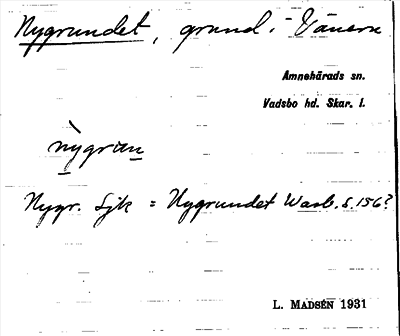 Nygrundet, grund i Vänern
Amnehärads sn.
Vadsbo hd. Skar. l.
nỳgrun
Nygr. Sjk = Nygrundet Wasb. s. 156?
L. MADSÉN 1931